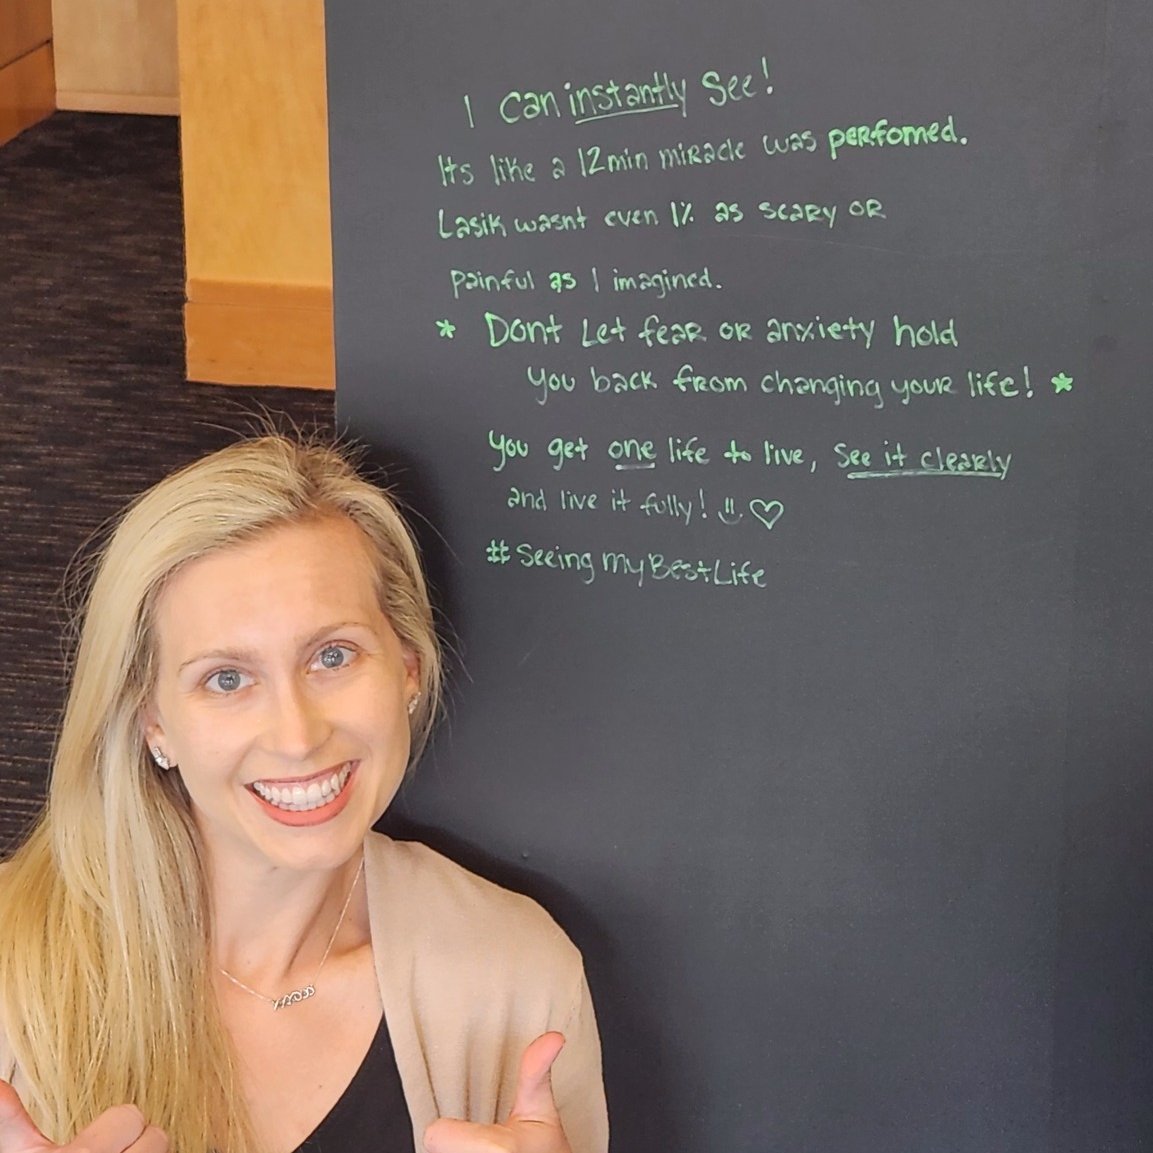 I can instantly See!
Its like a 12min miracle was perfomed.
Lasik wasnt even 1% as scary or
painful as I imagined.
* Dont Let fear or anxiety hold
you back from changing your life! *
you get one life to live, See it clearly
and live it fully!
#SeeingMyBestLife